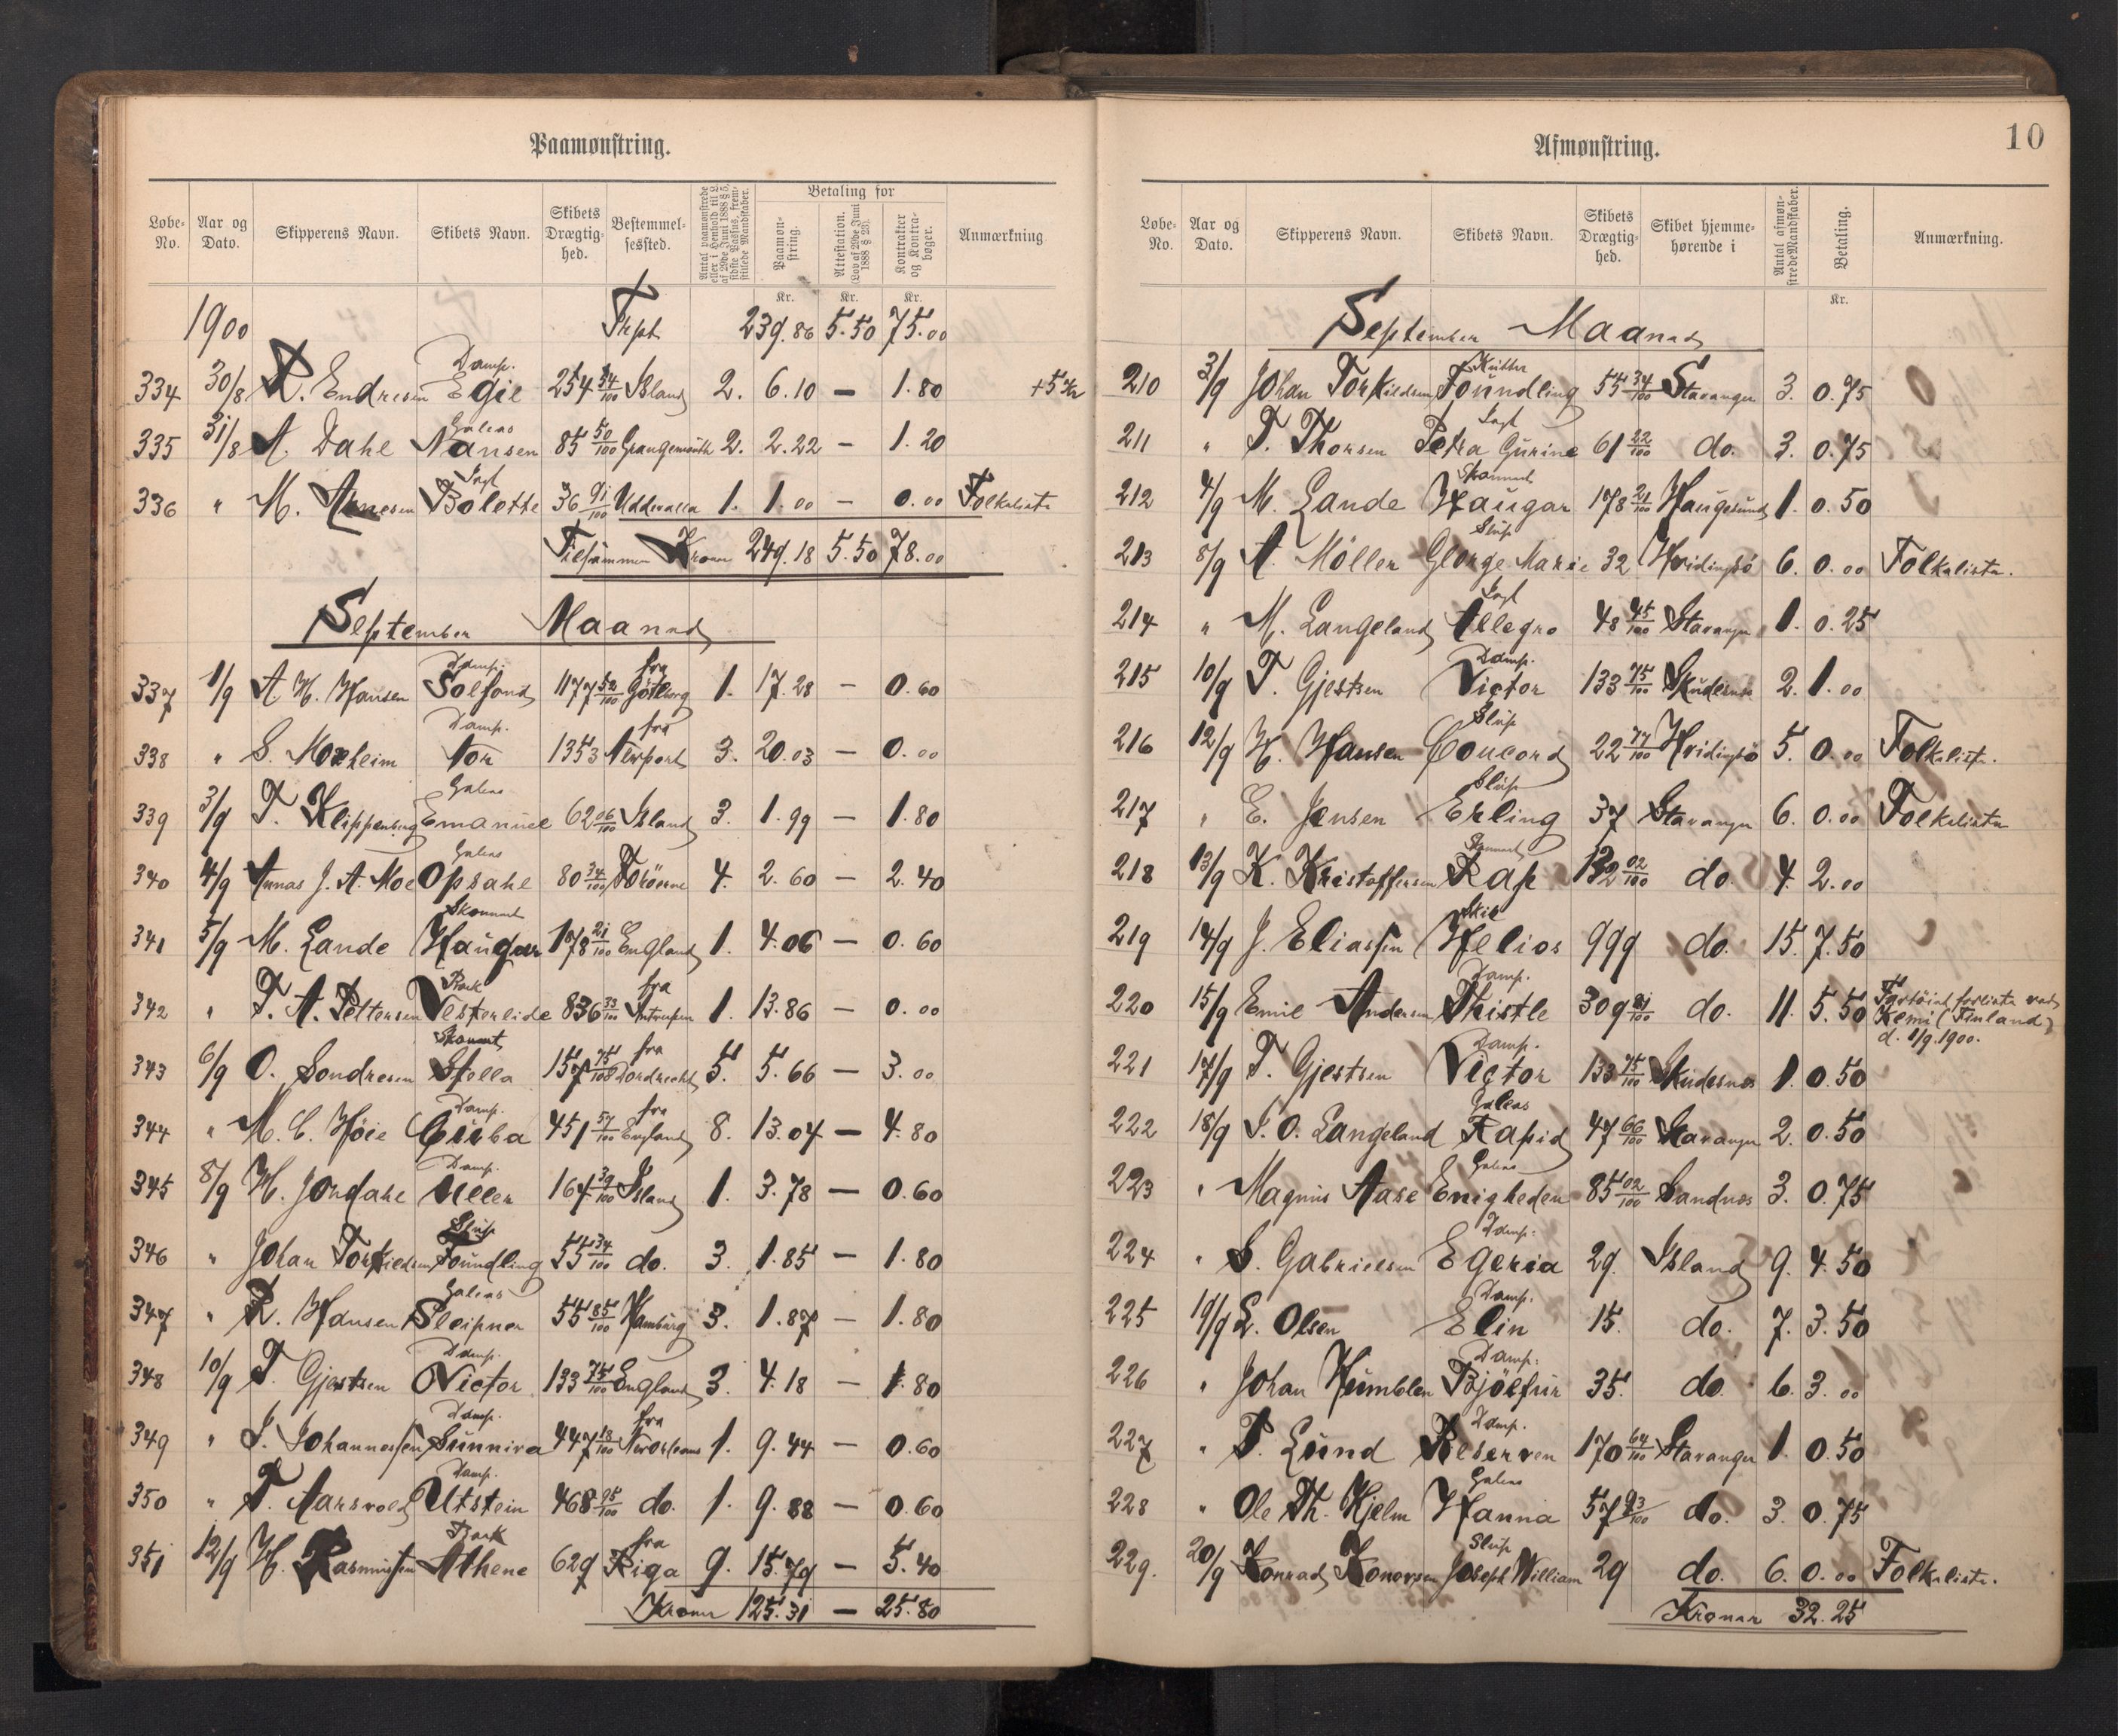 Paamønstring.
Løbe-No. Aar og Dato. Skipperens Navn. Skibets Navn. Skibets Drægtighed. Bestemmelsessted. Antal paamønstrede eller i Henhold til L. af 29de Juni 1888 § 5, sidste Passus, fremstillede Mandskaber. Betaling for Paamønstring. Attestation. (Lov af 29de Juni 1888 § 23). Kontrakter og Kontrabøger. Anmærkning
Kr. Kr. Kr.
1900 Trspt 239.86 5.50 75.00
334 30/8 R. Endresen Damp. Egil 254 54/100 Island 2. 6.10 — 1.80 +5 Kr
335 31/8 A. Dahl Galeas Nansen 85 50/100 Grangemouth 2. 2.22 — 1.20
336 " M. Arnesen Jagt Bolette 36 91/100 Uddevalla 1. 1.00 — 0.00 Folkeliste
Tilsammen Kroner 249.18 5.50 78.00
September Maaned
337 1/9 A H. Hansen Damp. Solfond 1177 52/100 fra Göteborg 1. 17.28 — 0.60
338 " S. Moxheim Damp. Tor 1353 fra Newport 3. 20.03 — 0.00
339 3/9 T. Klippenberg Galeas Emanuel 62 06/100 Island 3. 1.99 — 1.80
340 4/9 Annas J. A. Moe Galeas Opsahl 80 34/100 Færöerne 4. 2.60 — 2.40
341 5/9 M. Lande Skonnert Haugar 178 21/100 England 1. 4.06 — 0.60
342 " T. A. Pettersen Bark Vesterlide 836 33/100 fra Antwerpen 1. 13.86 — 0.00
343 6/9 O. Sondresen Skonnert Stella 157 75/100 fra Dordrecht 5. 5.66 — 3.00
344 " M. C. Höie Damp. Ciuba 451 57/100 fra England 8. 13.04 — 4.80
345 8/9 H. Jondahl Damp. Uller 164 39/100 Island 1. 3.78 — 0.60
346 " Johan Torkildsen Slup Foundling 55 34/100 do. 3. 1.85 — 1.80
347 " R. Hansen Galeas Sleipner 55 85/100 Hamburg 3. 1.87 — 1.80
348 10/9 T. Gjestsen Damp. Victor 133 75/100 England 3. 4.18 — 1.80
349 " J. Johannessen Damp. Sunniva 447 18/100 fra Neworleans 1. 9.44 — 0.60
350 " T. Aarsvold Damp. Utstein 468 95/100 do. 1. 9.88 — 0.60
351 12/9 H. Rasmussen Bark Athene 629 fra Riga 9. 15.79 — 5.40
Kroner 125.31 — 25.80
Afmønstring.
10
Løbe-No. Aar og Dato. Skipperens Navn. Skibets Navn. Skibets Drægtighed. Skibet hjemmehørende i Antal afmønstrede Mandskaber. Betaling. Anmærkning.
Kr.
September Maaned
210 3/9 Johan Torkildsen Kutter Foundling 55 34/100 Stavanger 3. 0.75
211 " T. Thorsen Jagt Petra Gurine 61 22/100 do. 3. 0.75
212 4/9 M. Lande Skonnert Haugar 178 21/100 Haugesund 1. 0.50
213 8/9 A. Möller Slup George Marie 32 Hvidingsö 6. 0.00 Folkeliste.
214 " M. Langeland Jagt Allegro 48 45/100 Stavanger 1. 0.25
215 10/9 T. Gjestsen Damp. Victor 133 75/100 Skudesnes 2. 1.00
216 12/9 H. Hansen Slup Concord 22 77/100 Hvidingsö 5. 0.00 Folkeliste.
217 " E. Jensen Slup Erling 37 Stavanger 6. 0.00 Folkeliste
218 13/9 K. Kristoffersen Skonnert Rap 132 02/100 do. 4. 2.00
219 14/9 J. Eliassen Skib Helios 999 do. 15. 7.50
220 15/9 Emil Andersen Damp. Thistle 309 21/100 do. 11. 5.50 Fartöiet forliste ved Kemi (Finland) d. 1/9.1900.
221 17/9 T. Gjestsen Damp. Victor 133 75/100 Skudesnes 1. 0.50
222 18/9 S. O. Langeland Galeas Rapid 47 66/100 Stavanger 2. 0.50
223 " Magnus Aase Galeas Enigheden 85 02/100 Sandnes 3. 0.75
224 " S. Gabrielsen Damp. Egeria 29. Island 9. 4.50
225 19/9 L. Olsen Damp. Elin 15. do. 7. 3.50
226 " Johan Humblen Damp. Bjölfur 35. do. 6. 3.00
227 " P. Lund Damp. Reserven 170 64/100 Stavanger 1. 0.50
228 " Ole Th. Hjelm Galeas Hanna 57 93/100 do. 3. 0.75
229. 20/9 Konrad Konorsen Slup Joseph William 29 do. 6. 0.00 Folkeliste.
Kroner 32.25